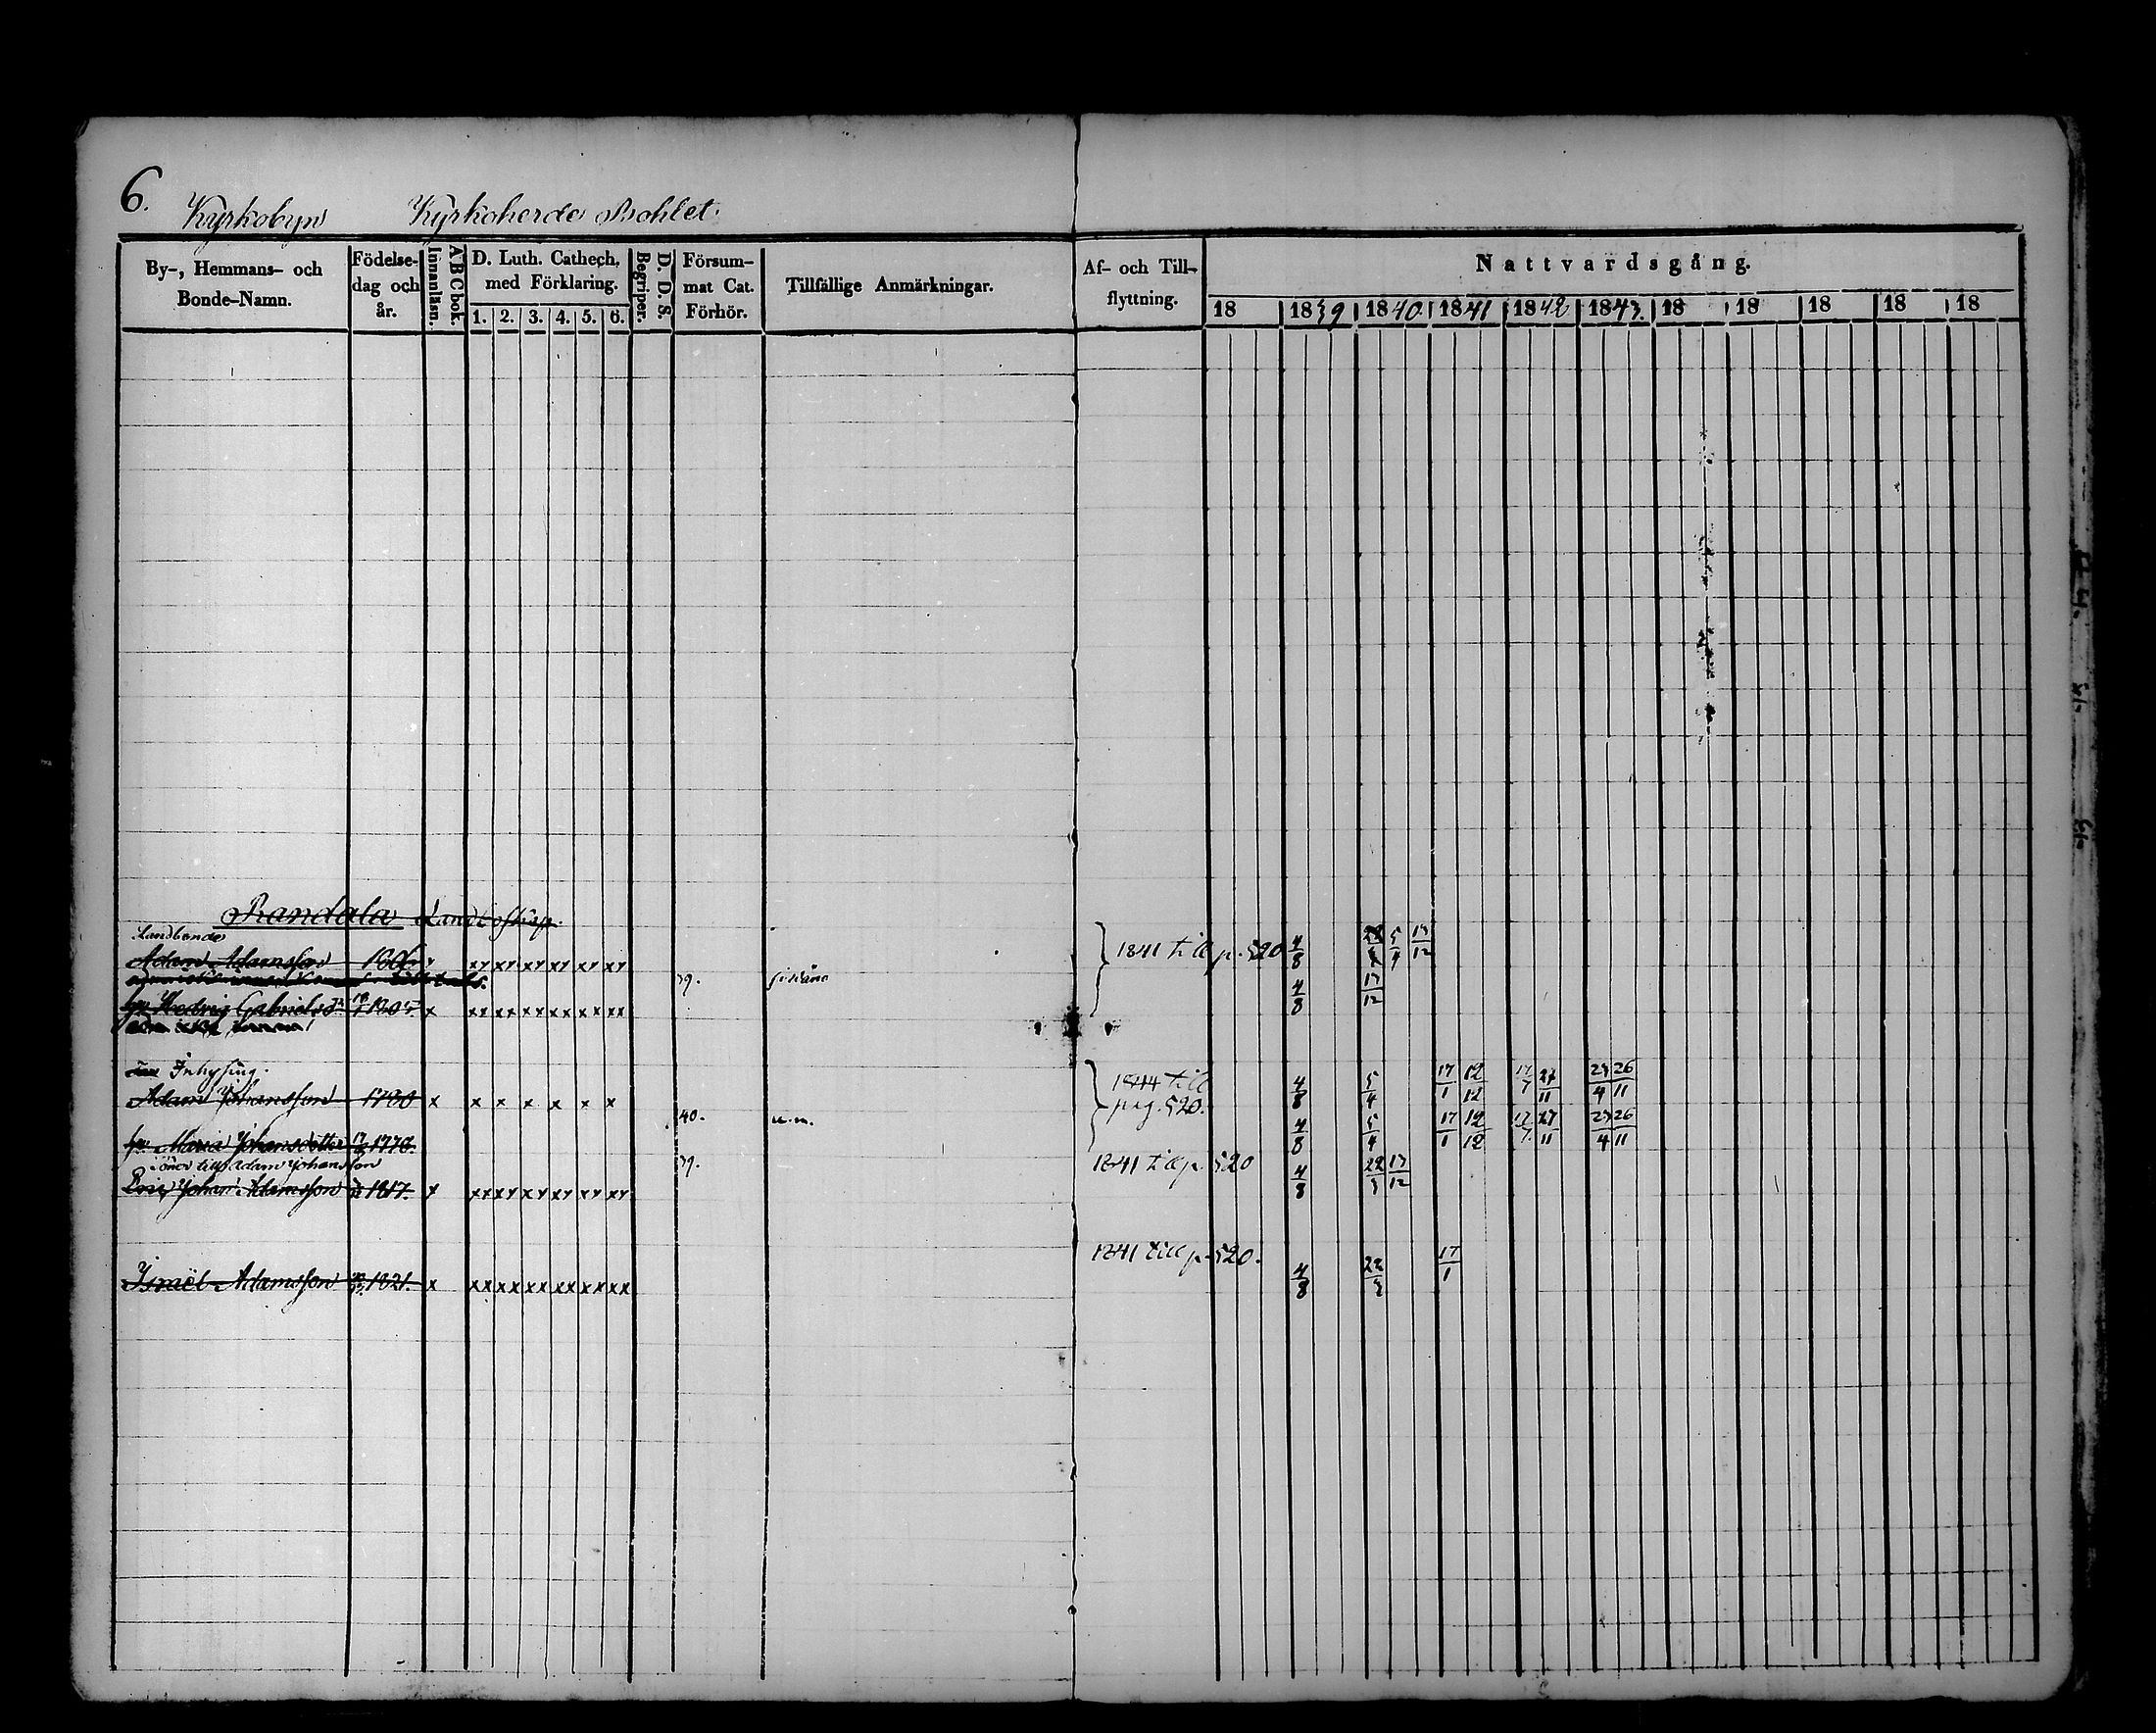 6. Kyrkobyn Kyrkoherde Bohlet.
By-, Hemmans- och Bonde-Namn.
Födelsedag och år.
A B C bok. Innanläsn.
D. Luth. Cathech. med Förklaring.
1. 2. 3. 4. 5. 6.
D. D. S. Begriper.
Försummat Cat. Förhör.
Tillfällige Anmärkningar.
Af- och Tillflyttning.
Nattvardsgång.
18 1839 1840. 1841 1842 1843. 18 18 18 18 18
Randala
Landbonde
Adam Adamsson 1806 x xx xx xx xx xx xx 1841 till p. 520 4/8 5/4 13/12
39.
hu Hedvig Gabrielsdr 1805 x xx xx xx xx xx xx 4/8 13/12
Inhysing.
Adam Johansson 1780 x x x x x x x 1844 till pag. 520. 4/8 5/4 17/1 12/12 17/7 27/11 23/4 26/11
40.
hu Maria Johansdotter 1770. 4/8 5/4 17/1 12/12 17/7 27/11 23/4 26/11
Söner till Adam Johansson
39. 1841 till p. 520
Johan Adamsson 1817. x xx xx xx xx xx xx 4/8 22/3 13/12
1841 till p. 520.
Ismaël Adamsson 1821. x xx xx xx xx xx xx 4/8 22/3 17/1